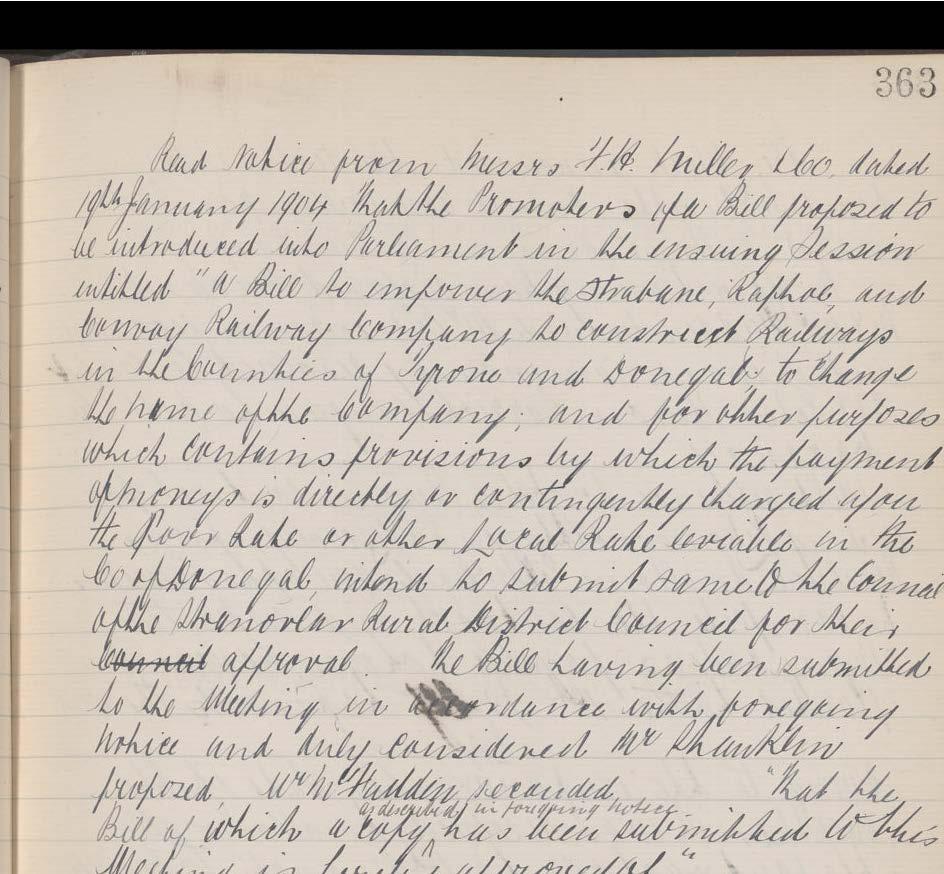 363
Read Notice from Messrs F.H. Miller & Co. dated
19th January 1904 that the Promoters of a Bill proposed to
be introduced into Parliament in the ensuing Session
intitled "a Bill to empower the Strabane, Raphoe, and
Convoy Railway Company to construct Railways
in the Counties of Tyrone and Donegal, to change
the name of the Company; and for other purposes
which contains provisions by which the payment
of moneys is directly or contingently charged upon
the Poor Rate or other Local Rate leviable in the
Co of Donegal, intend to submit same to the Council
of the Stranorlar Rural District Council for their
Council approval. The Bill having been submitted
to the Meeting in accordance with foregoing
Notice and duly considered Mr Shanklin
proposed, Mr McFadden seconded, "That the
as described in foregoing notice
Bill of which a copy has been submitted to this
Meeting is hereby approved of"